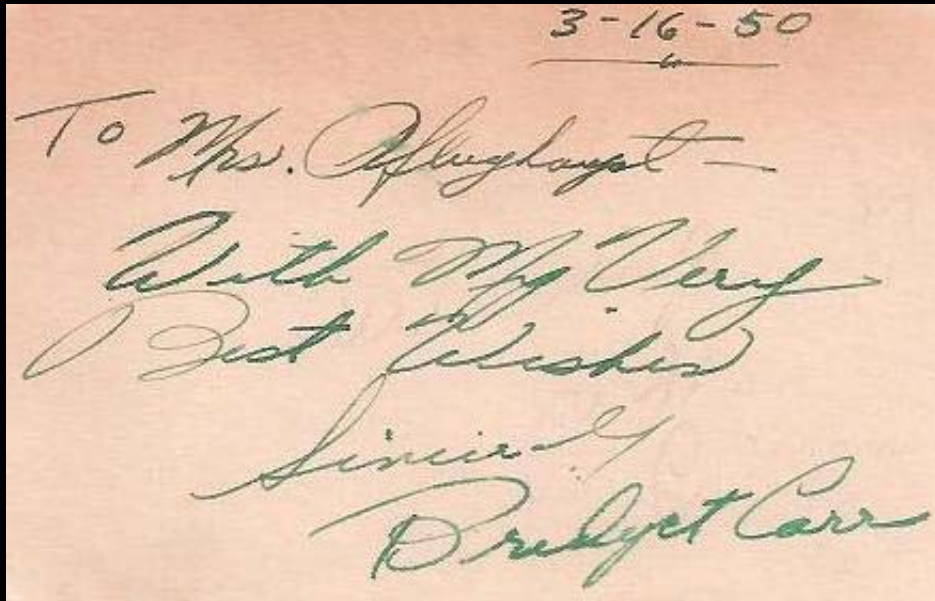 3-16-50
To Mrs. Pflughaupt -
With My Very
Best Wishes
Sincerely
Bridget Carr